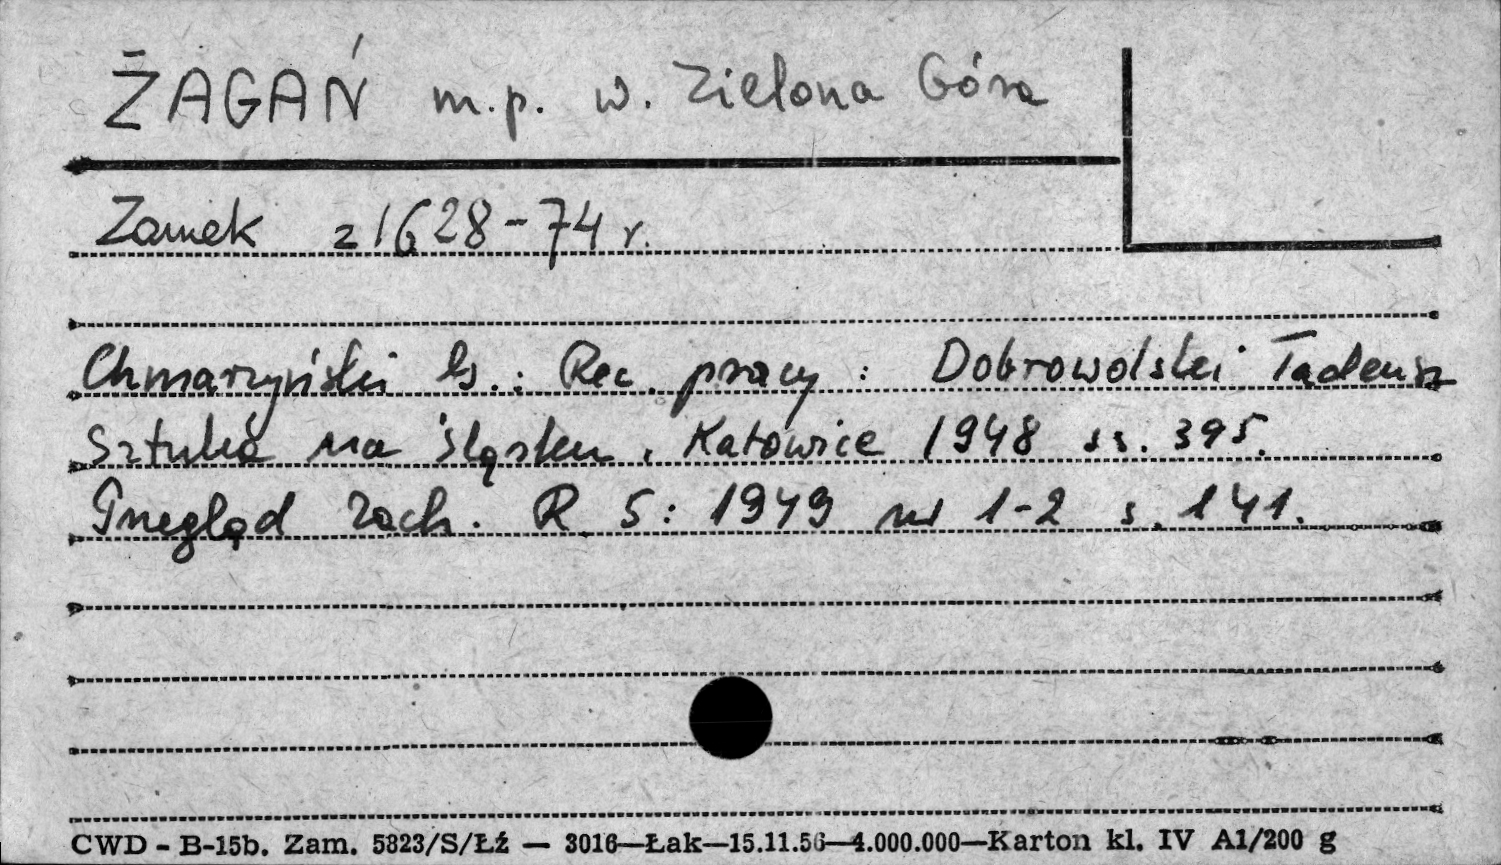 ŻAGAŃ m.p. w. Zielona Góra
Zamek z 1628-74 r.
Chmarzyński G.: Rec. pracy: Dobrowolski Tadeusz
Sztuka na Śląsku. Katowice 1948 ss. 395.
Przegląd Zach. R 5: 1949 nr 1-2 s. 141.
CWD - B-15b. Zam. 5823/S/Łź — 3016—Łak—15.11.56—4.000.000—Karton kl. IV A1/200 g